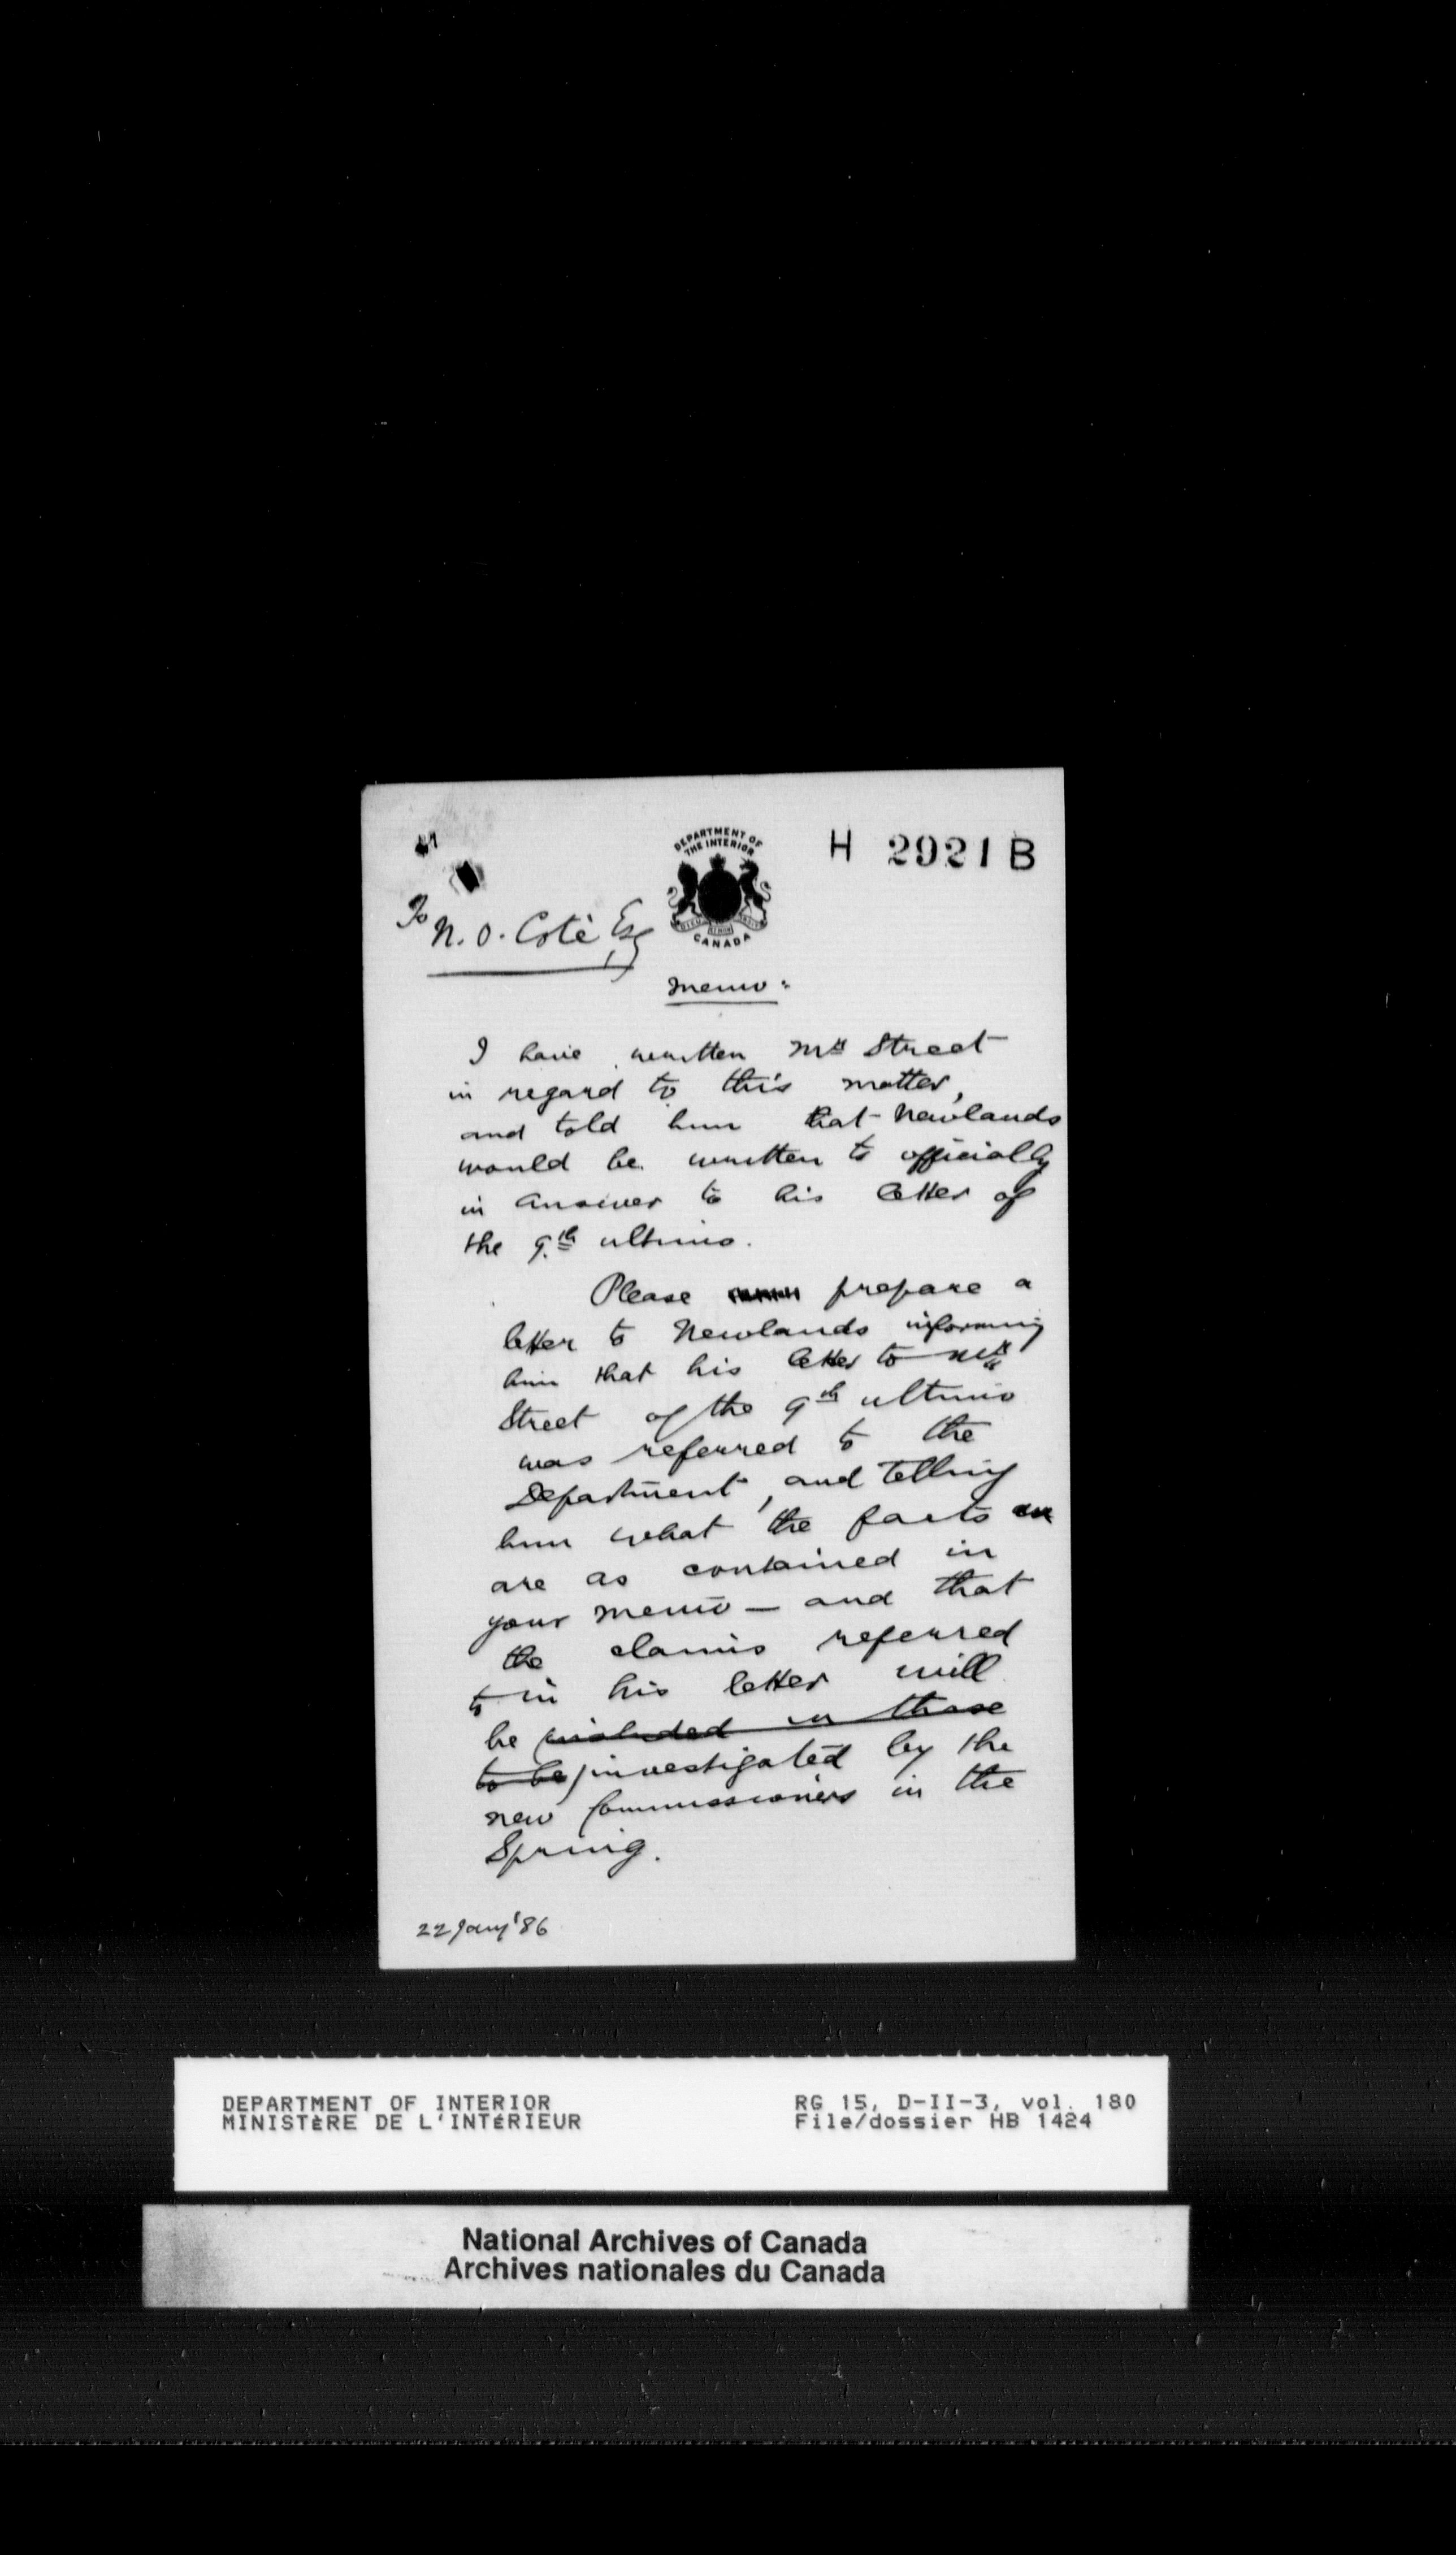 H 2921 B
DEPARTMENT OF
THE INTERIOR
CANADA
To N. O. Coté, Esq
Memo:
I have written Mr Street
in regard to this matter,
and told him that Newlands
would be written to officially
in answer to his letter of
the 9.th ultimo.
Please prepare a
letter to Newlands informing
him that his letter to Mr
Street of the 9th ultimo
was referred to the
Department, and telling
him what the facts
are as contained in
your memo — and that
the claims referred
to in his letter will
be included in those
to be investigated by the
new Commissioners in the
Spring.
22 Jany '86
DEPARTMENT OF INTERIOR
MINISTÈRE DE L'INTÉRIEUR
RG 15, D-II-3, vol. 180
File/dossier HB 1424
National Archives of Canada
Archives nationales du Canada